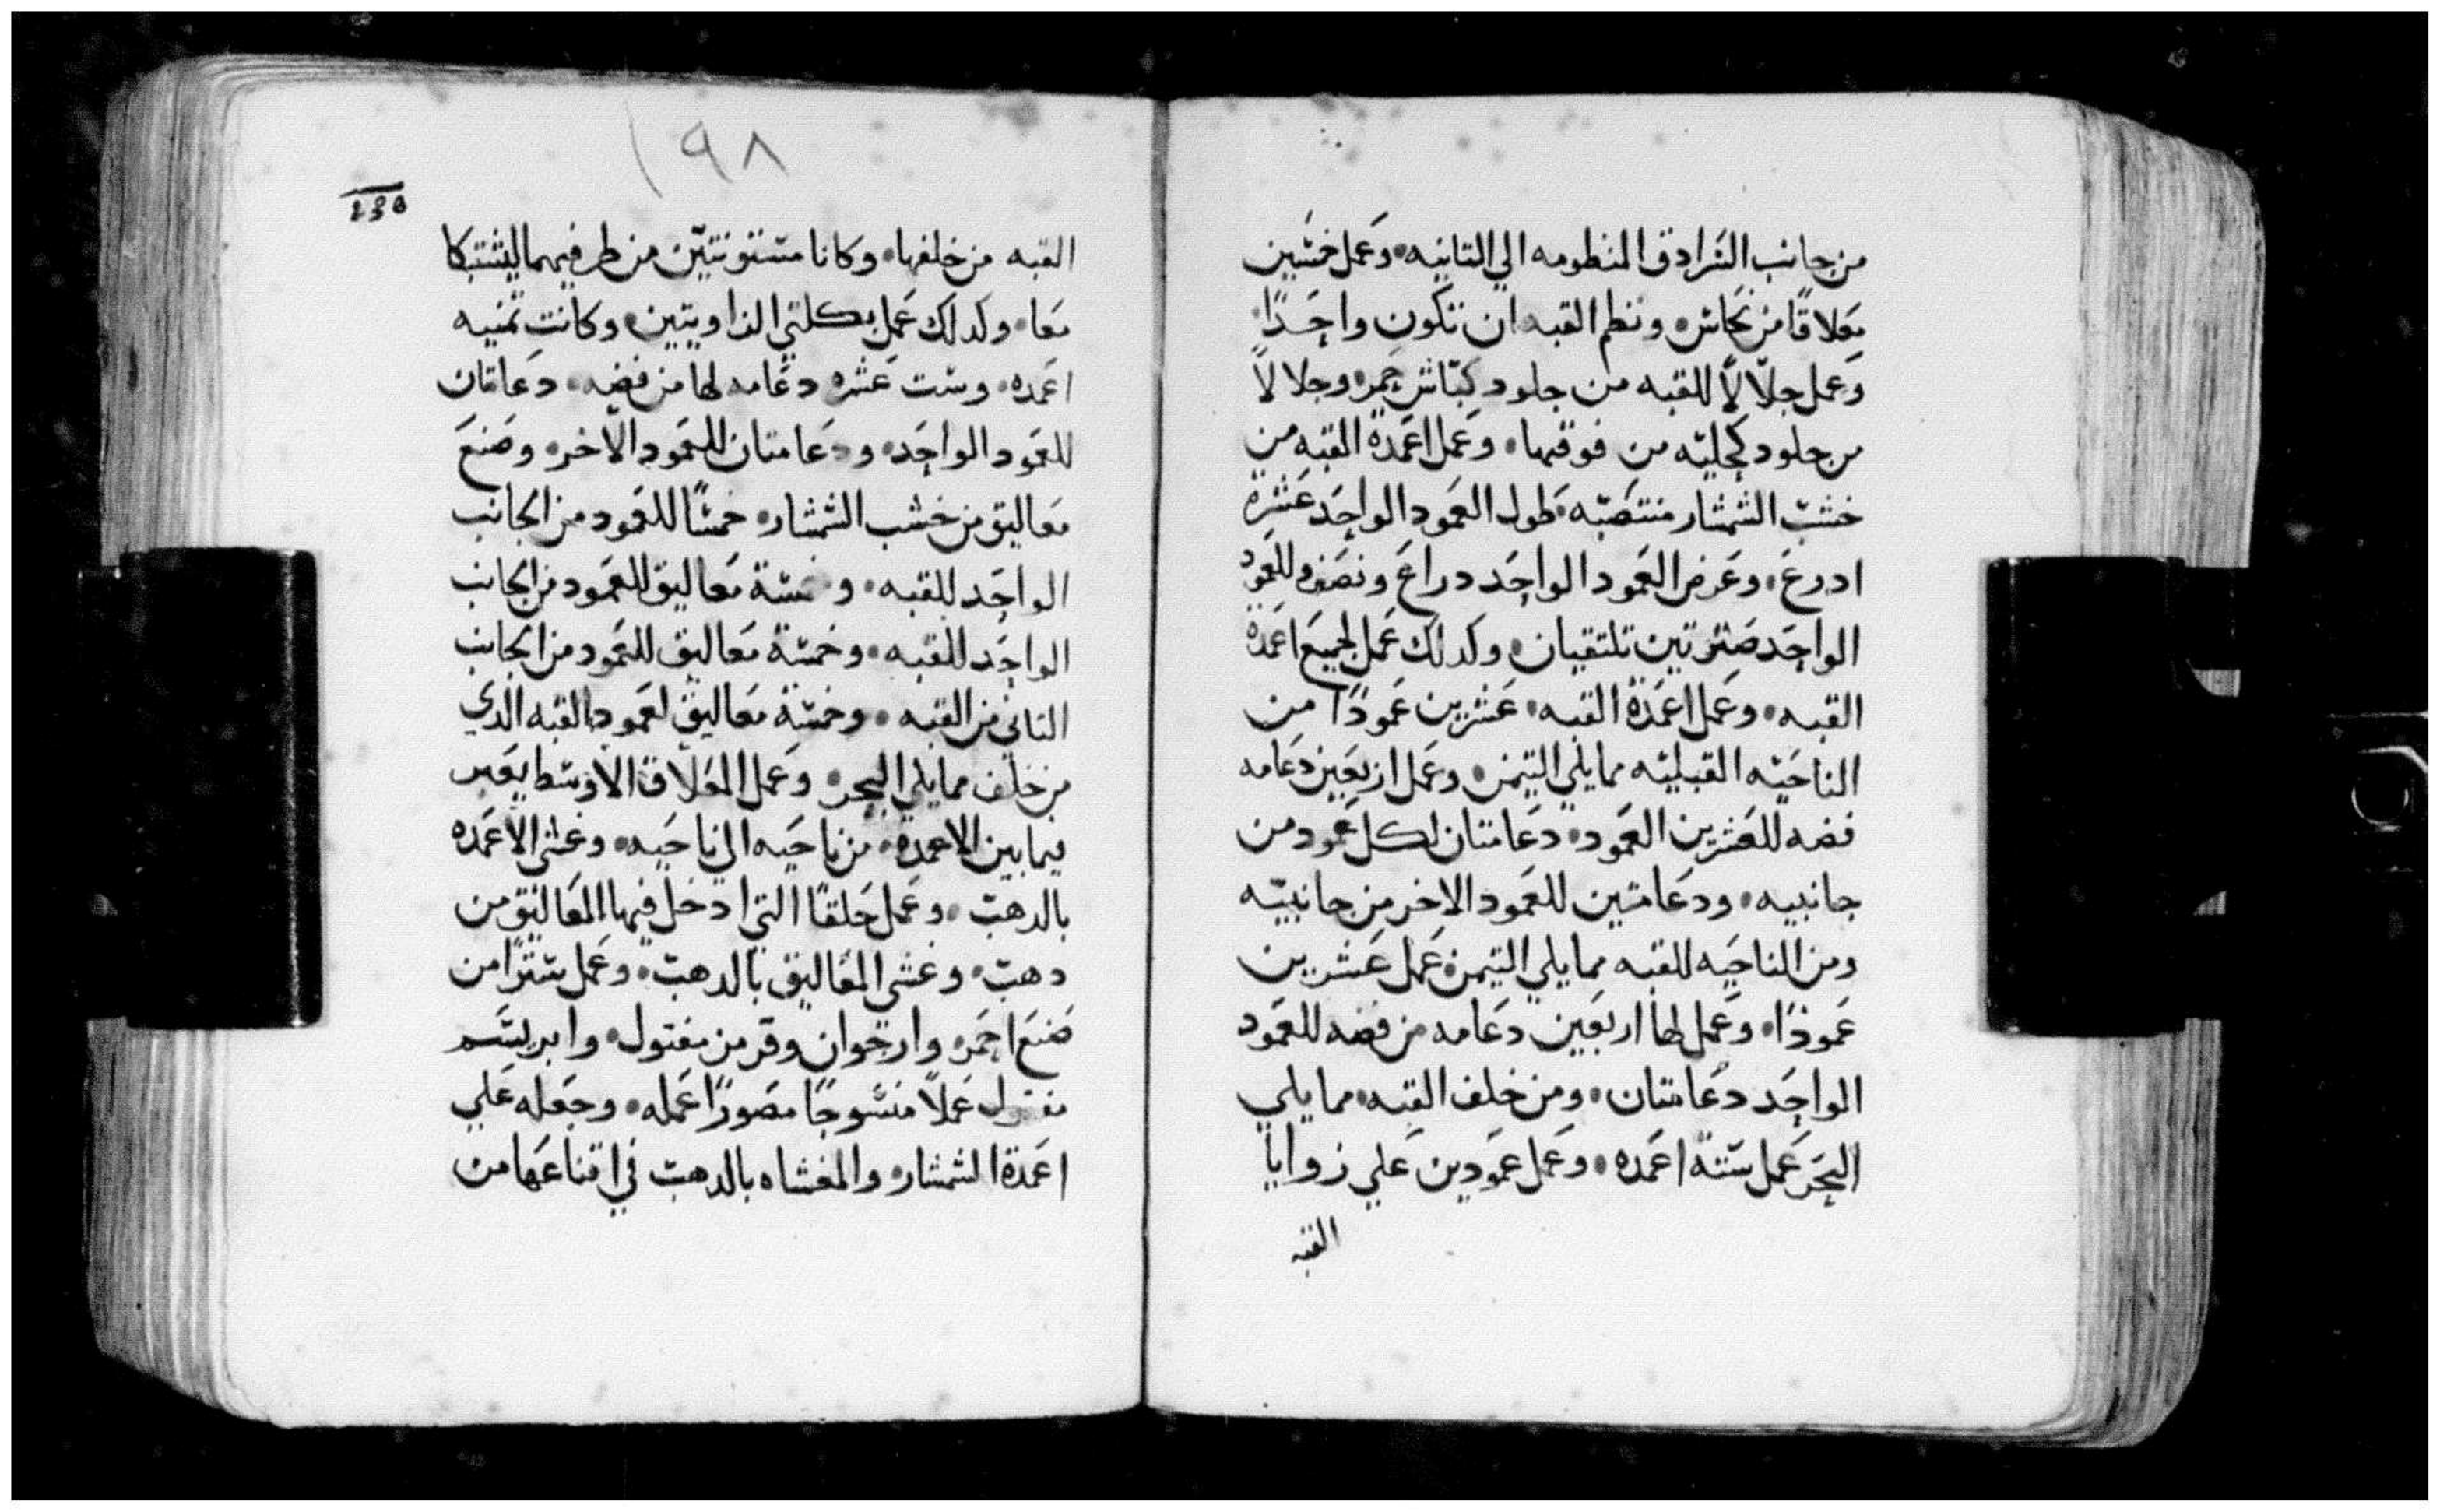 من جانب السرادق المنظومه الي التانيه • وعمل خمسين
معلاقًا من نحاس • ونظم القبه ان تكون واحدًا
وعمل جلالاً للقبه من جلود كباش حمر • وجلالاً
من جلود كحليه من فوقها • وعمل اعمدة القبه من
خشب الشمشار منتصبه • طول العمود الواحد عشرة
ادرع • وعرض العمود الواحد دراع ونصف وللعمود
الواحد صترتين تلتقيان • وكدلك عمل لجميع اعمدة
القبه • وعمل اعمدة القبه • عشرين عمودًا من
الناحيه القبليه مما يلي التيمن • وعمل اربعين دعامه
فضه للعشرين العمود • دعامتان لكل عمود من
جانبيه • ودعامتين للعمود الاخر من جانبيه
ومن الناحيه للقبه مما يلي التيمن عمل عشرين
عمودًا • وعمل لها اربعين دعامه من فضه للعمود
الواحد دعامتان • ومن خلف القبه • مما يلي
البحر عمل ستة اعمده • وعمل عمودين علي زوايا
القبه
١٩٨
القبه من خلفها • وكانا مستوتنين من طرفيهما ليشتبكا
معا • وكدلك عمل بكلتي الزاويتين • وكانت تمنيه
اعمده • وست عشره دعامه لها من فضه • دعامتان
للعمود الواحد • ودعامتان للعمود الاخر • وصنع
معاليق من خشب الشمشار • خمسًا للعمود من الجانب
الواحد للقبه • وخمسة معاليق للعمود من الجانب
الواحد للقبه • وخمسة معاليق للعمود من الجانب
التاني من القبه • وخمسة معاليق لعمود القبه الدي
من خلف مما يلي البحر • وعمل المعلاق الاوسط يعبر
فيما بين الاعمدة • من ناحيه الي ناحيه • وغشي الاعمده
بالدهب • وعمل حلقًا التي ادخل فيها المعاليق من
دهب • وغشي المعاليق بالدهب • وعمل سترًا من
صنع احمر • وارجوان وقرمز مفتول • وابريسم
مغزول عملاً منسوجًا مصورًا عمله • وجعله علي
اعمدة الشمشار • والمغشاه بالدهب في اقناعها من